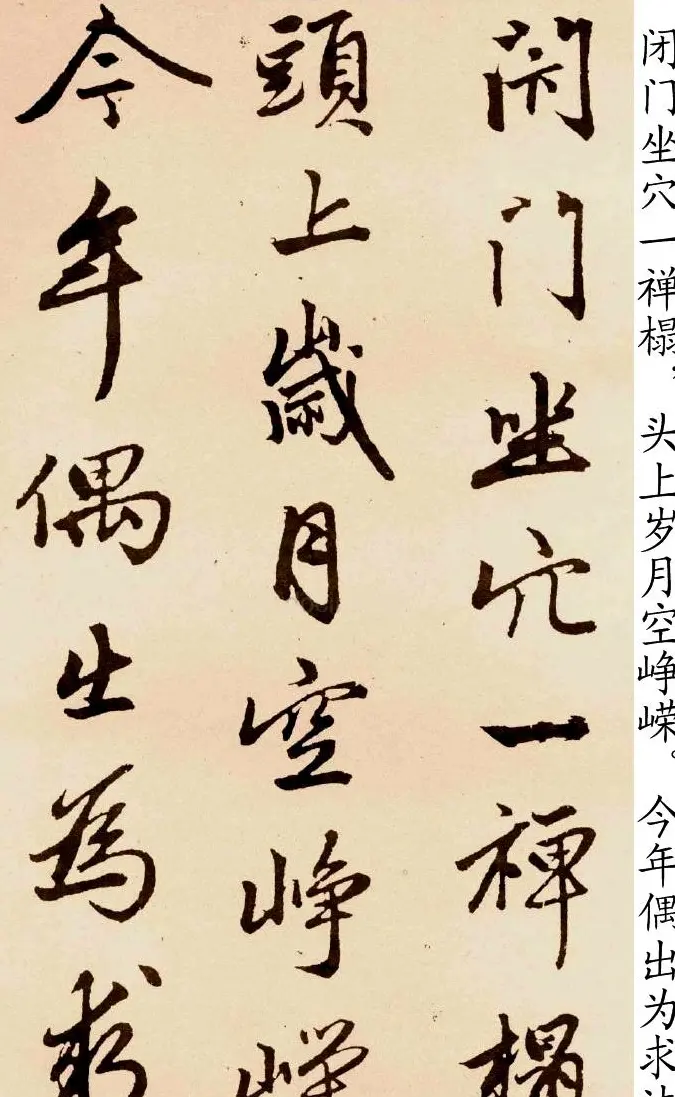 闭门坐穴一禅榻，头上岁月空峥嵘。今年偶出为求
閇门坐穴一禪榻
頭上歲月空崢嶸
今年偶出為求